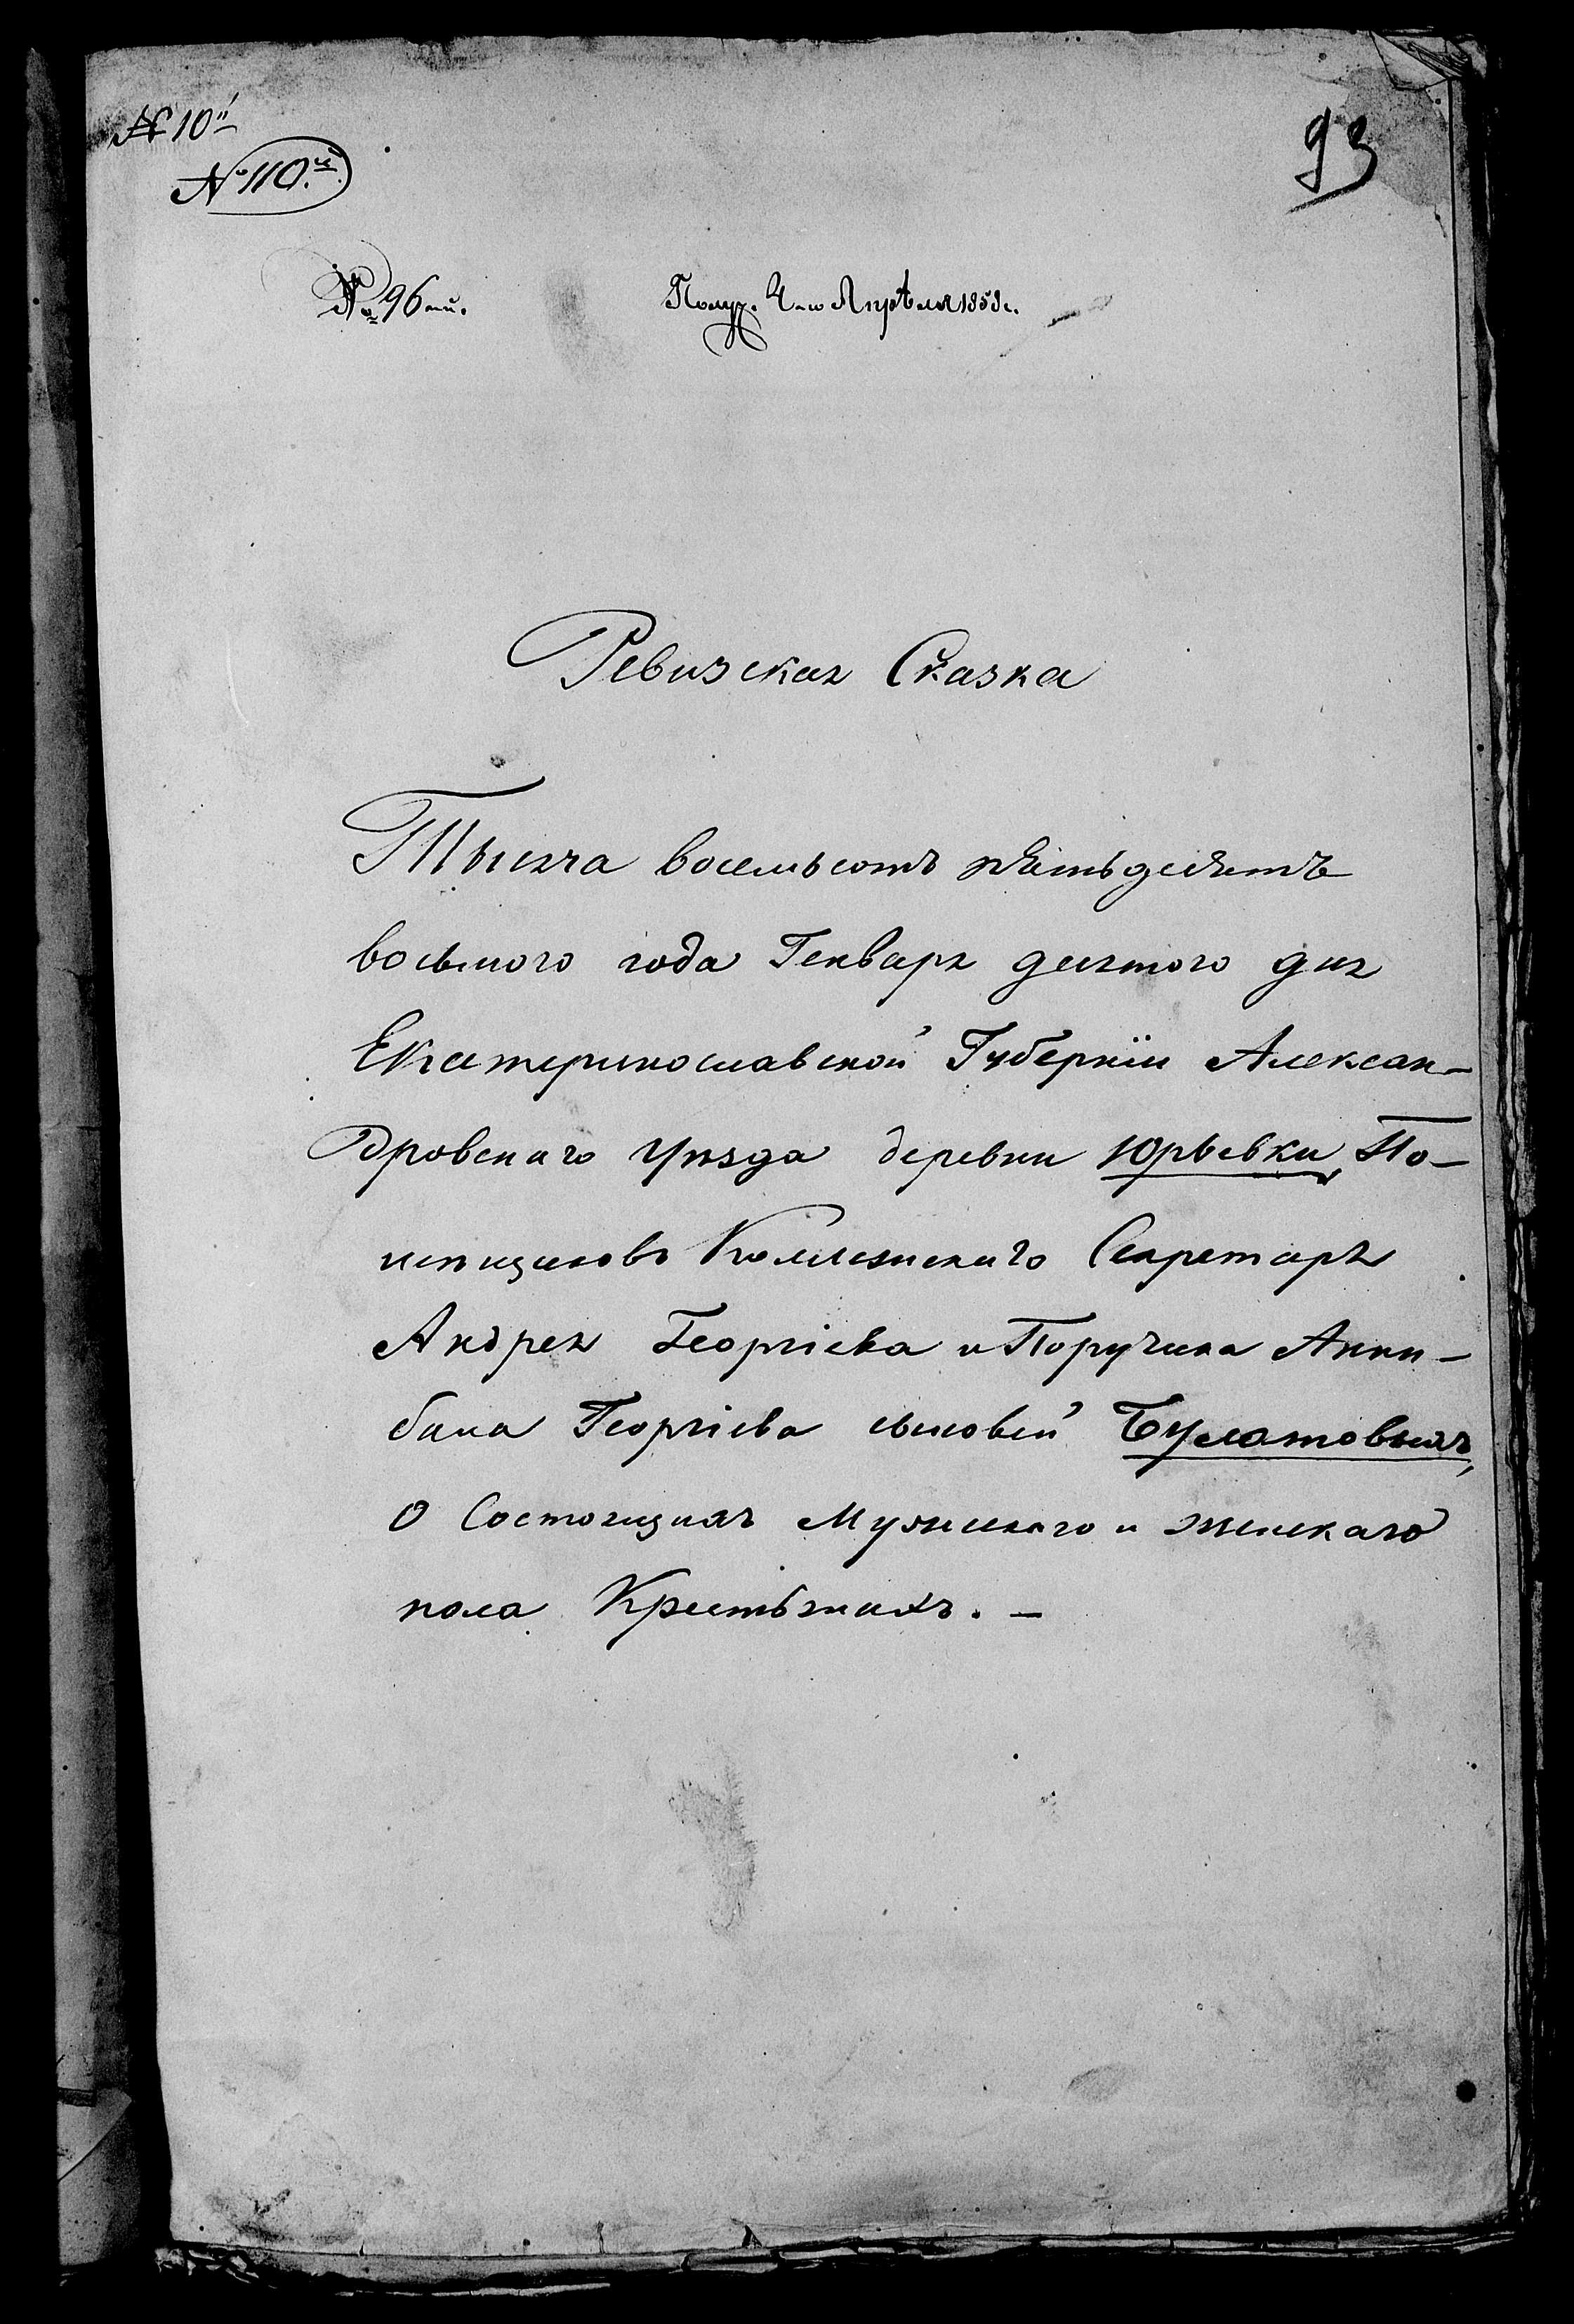 № 10й
93
№ 110.й
№ 96ый.
Получ. 4го Апрѣля 1858г.
Ревизская Сказка
Тысяча восемьсотъ пятьдесятъ
восьмого года Генваря десятого дня
Екатеринославской Губерніи Алексан-
дровскаго Уѣзда деревни Юрьевки, По-
мѣщиковъ Коллежскаго Секретаря
Андрея Георгіева и Поручика Анни-
бала Георгіева сыновей Булатовыхъ,
О Состоящихъ Мужскаго и женскаго
пола Крестьянахъ. -